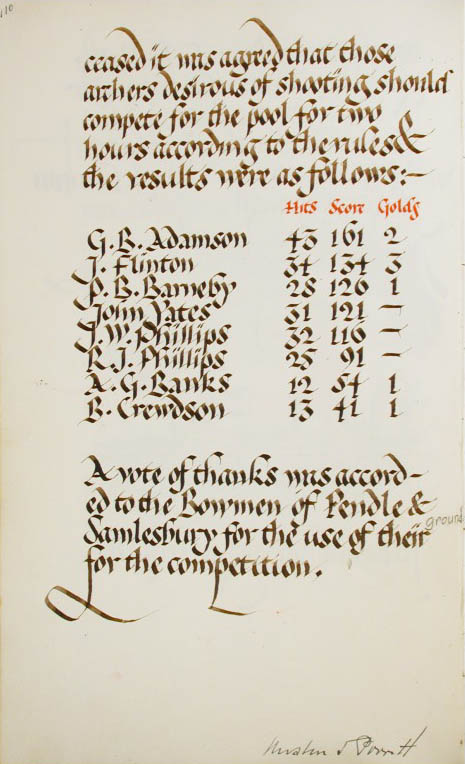 110
ceased it was agreed that those
archers desirous of shooting should
compete for the pool for two
hours according to the rules &
the results were as follows:—
Hits Score Golds
G. B. Adamson 43 161 2
J. Flinton 34 134 3
P. B. Barneby 28 126 1
John Yates 31 121 —
J. W. Phillips 32 116 —
R. J. Phillips 25 91 —
A. G. Banks 12 54 1
B. Crewdson 13 41 1
A vote of thanks was accord-
ed to the Bowmen of Pendle &
Samlesbury for the use of their ground
for the competition.